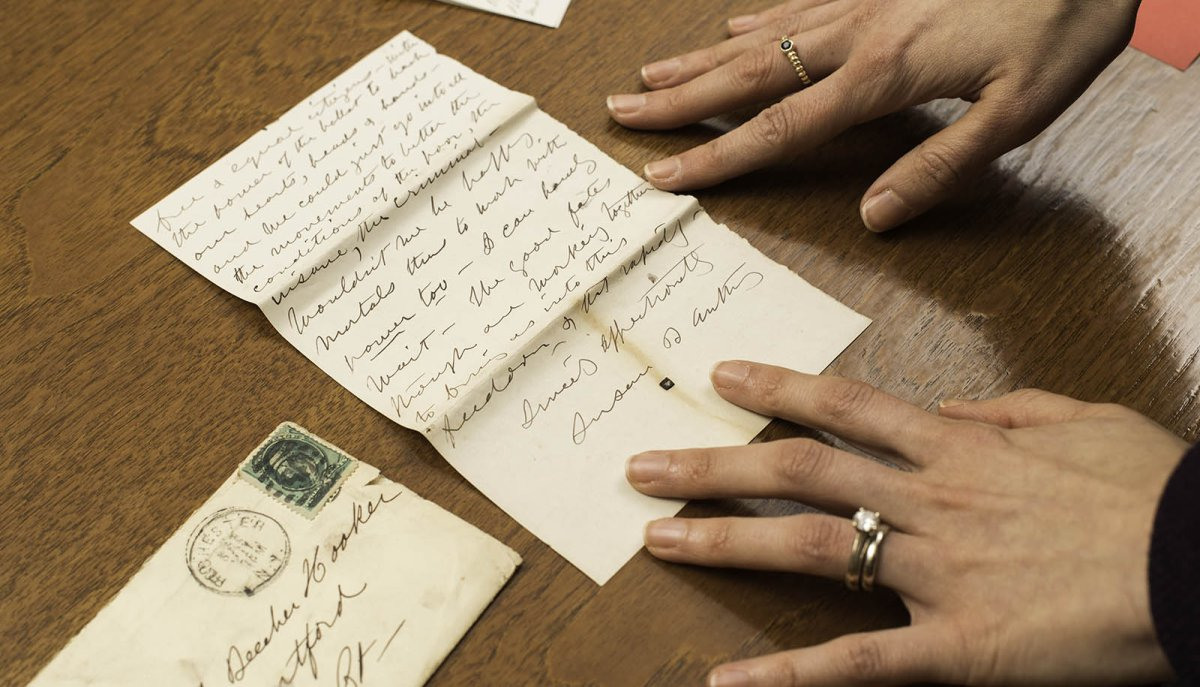 free & equal citizens — with
the power of the ballot to
our hearts, heads & hands —
and we could just go into all
the movements to better the
conditions of the poor, the
insane, the criminal
Wouldn't we be happy
mortals then to work with
power too — I can hardly
wait — The good fates
though are working together
to bring us into this
freedom & that rapidly
Sincerely & affectionately
Susan B Anthony
ROCHESTER
N.Y.
Beecher Hooker
rtford